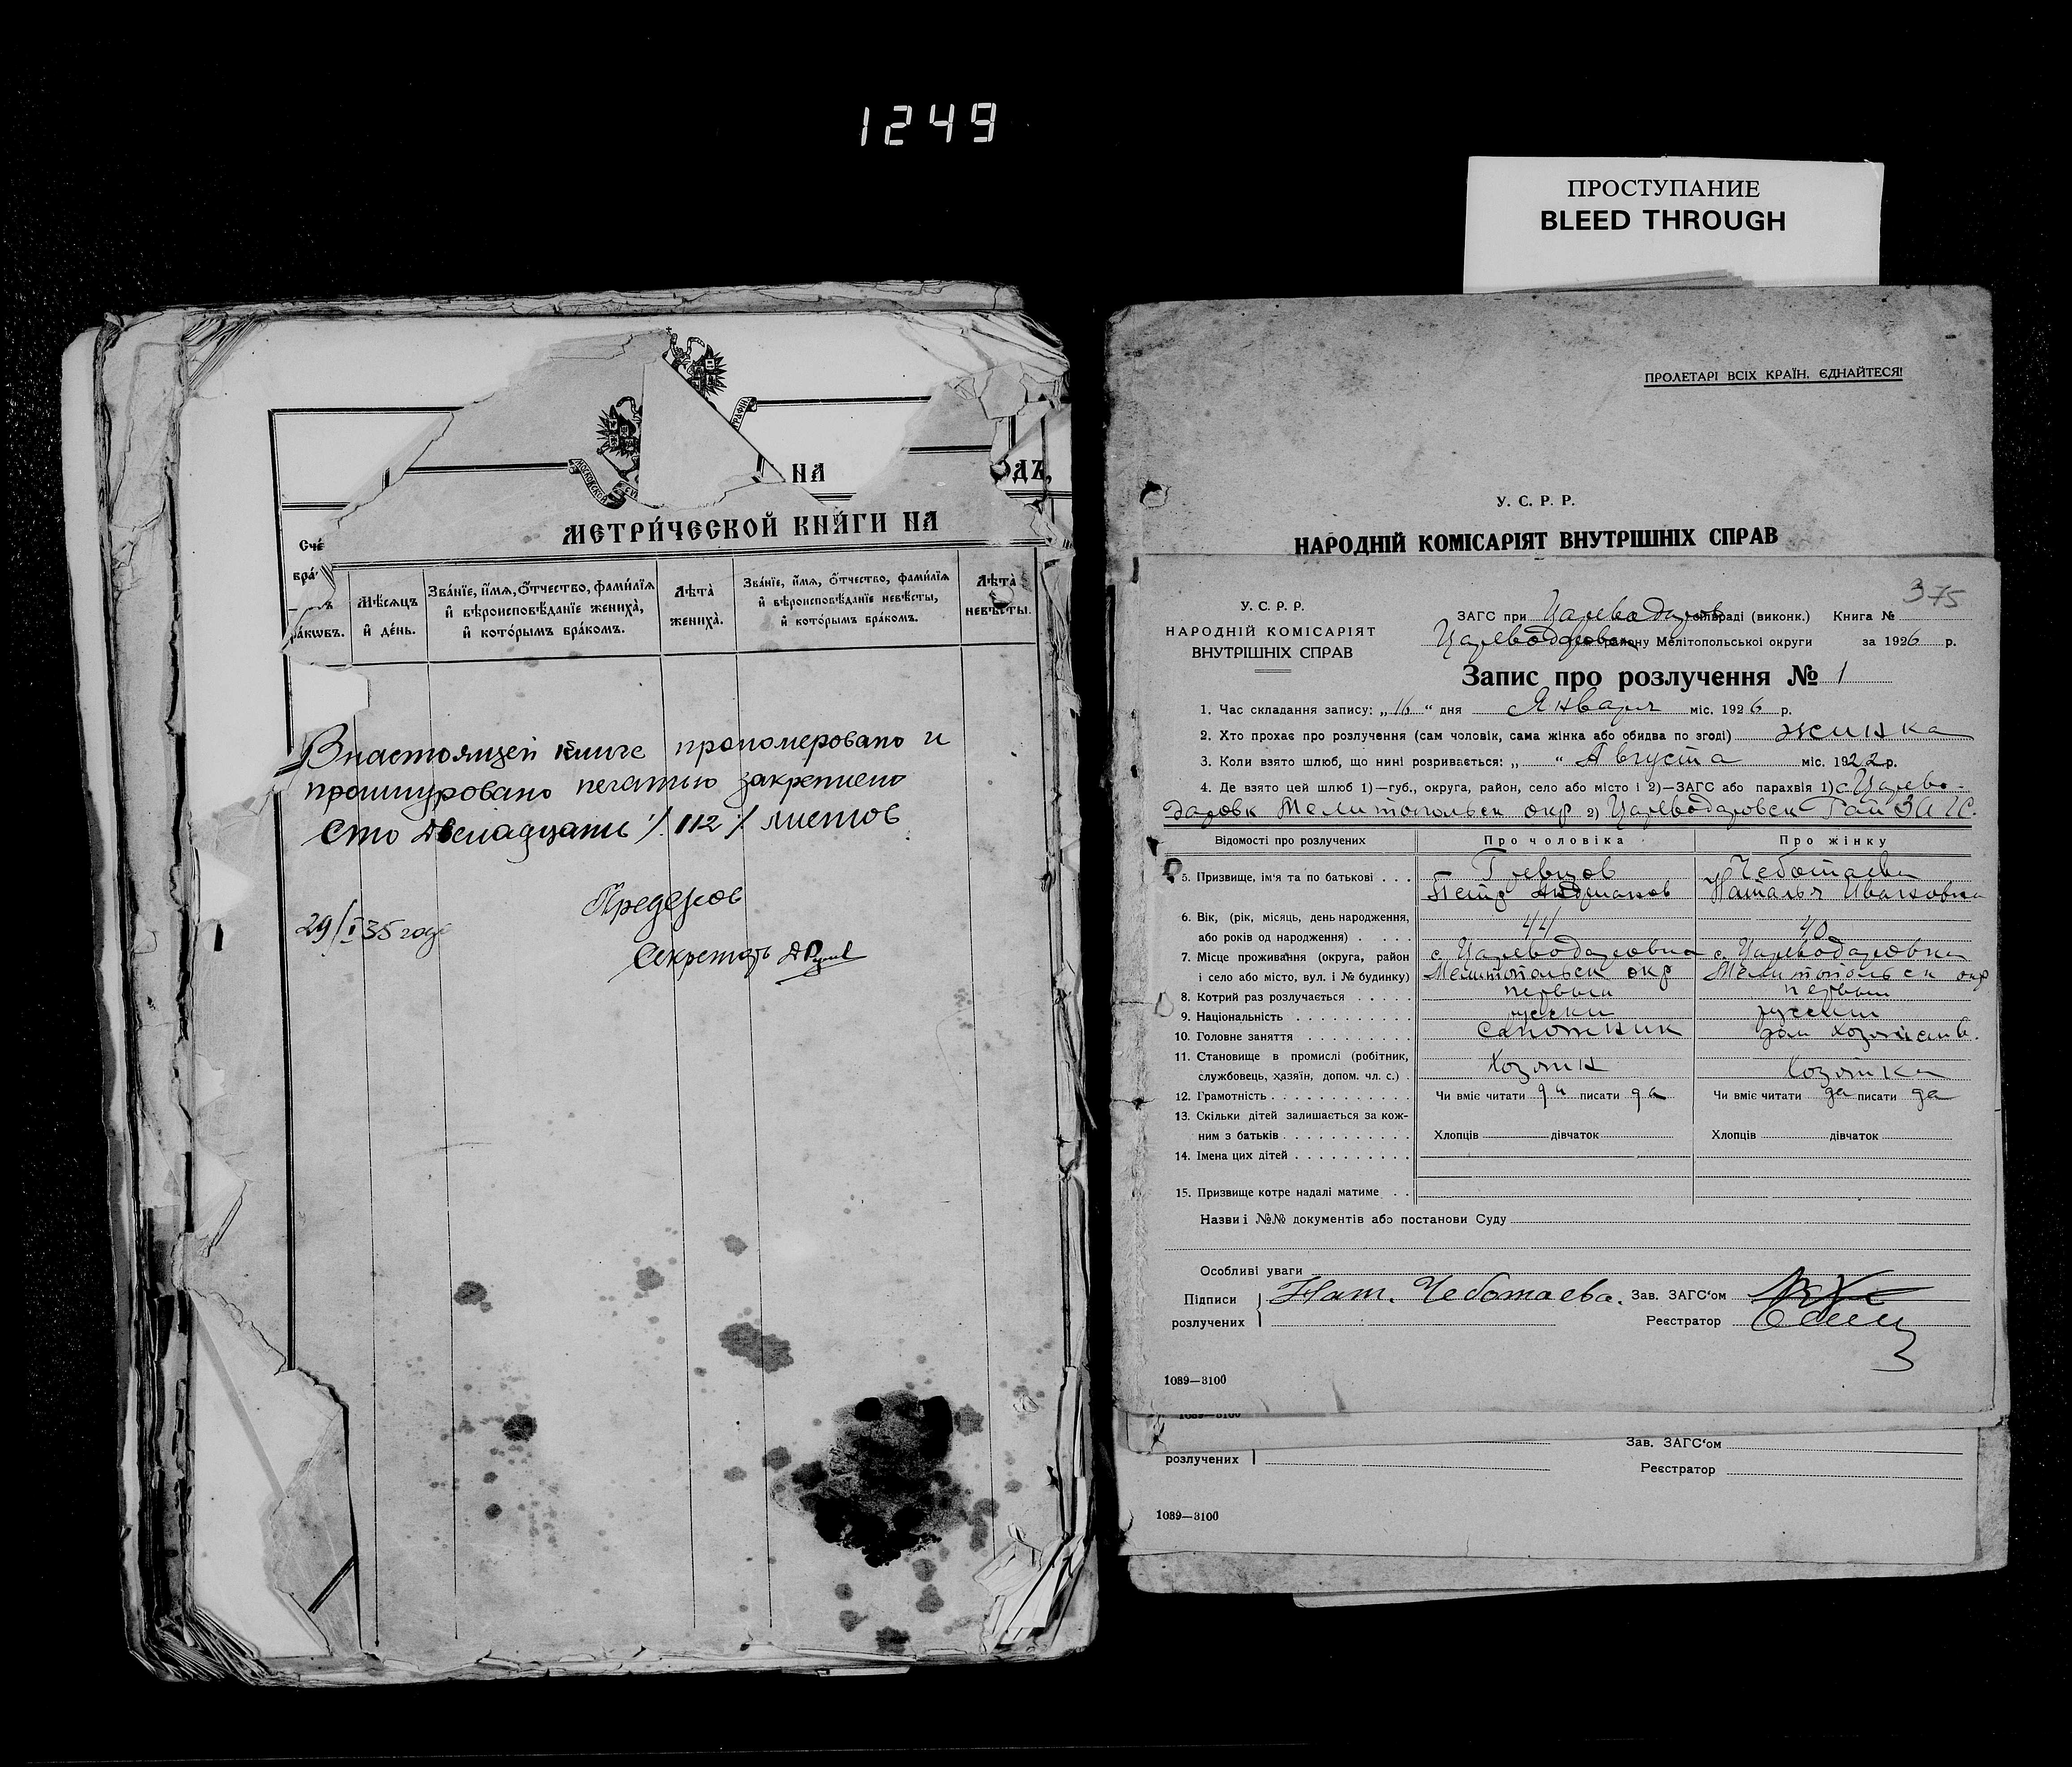 1249
ПРОСТУПАНИЕ
BLEED THROUGH
НА ОДЪ,
МЕТРИ́ЧЕСКОЙ КНИ́ГИ НА
Мѣ́сяцъ и҆ де́нь.
Зва́нїе, и҆́мѧ, ѻ҆́тчество, фамилїѧ и҆ вѣроисповѣ́данїе жениха̀, и҆ кото́рымъ бра́комъ.
Лѣта̀ жениха̀.
Зва́нїе, и҆́мѧ, ѻ҆́тчество, фамилїѧ и҆ вѣроисповѣ́данїе невѣ́сты, и҆ кото́рымъ бра́комъ.
Лѣта̀ невѣ́сты.
В настоящей книге прономеровано и
прошнуровано печатью закреплено
Сто двенадцать /. 112 / листов
29/I 35 года
Секретарь
ПРОЛЕТАРІ ВСІХ КРАЇН, ЄДНАЙТЕСЯ!
У. С. Р. Р.
НАРОДНІЙ КОМІСАРІЯТ ВНУТРІШНІХ СПРАВ
375
У. С. Р. Р.
НАРОДНІЙ КОМІСАРІЯТ
ВНУТРІШНІХ СПРАВ
ЗАГС при Царевода сільраді (виконк.) Книга №
Цареводаровск району Мелітопольської округи за 1926 р.
Запис про розлучення № 1
1. Час складання запису: „16“ дня Января міс. 1926 р.
2. Хто прохає про розлучення (сам чоловік, сама жінка або обидва по згоді) жинка
3. Коли взято шлюб, що нині розривається: „ “ Августа міс. 1922 р.
4. Де взято цей шлюб 1)—губ., округа, район, село або місто і 2)—ЗАГС або парахвія 1) с Царево-
даровк Мелитопольск окр 2) Цареводаровск Рай ЗАГС.
Відомості про розлучених Про чоловіка Про жінку
5. Призвище, ім'я та по батькові . . . Чеботаева
Петр Наталья Ивановна
6. Вік, (рік, місяць, день народження,
або років од народження) . . . . 44 40
7. Місце проживання (округа, район с. Цареводаровка с. Цареводаровка
і село або місто, вул. і № будинку) Мелитопольск окр Мелитопольск окр
8. Котрий раз розлучається . . . . . первый первый
9. Національність . . . . . . . . . . руски русский
10. Головне заняття . . . . . . . . . сапожник дом хозяйств.
11. Становище в промислі (робітник,
службовець, хазяїн, допом. чл. с.) . Хозяин Хозяйка
12. Грамотність . . . . . . . . . . . . Чи вміє читати да писати да Чи вміє читати да писати да
13. Скільки дітей залишається за кож-
ним з батьків . . . . . . . . . . . Хлопців дівчаток Хлопців дівчаток
14. Імена цих дітей . . . . . . . . . .
15. Призвище котре надалі матиме . .
Назви і №№ документів або постанови Суду
Особливі уваги
Підписи Нат. Чеботаева. Зав. ЗАГС'ом
розлучених Реєстратор
1089—3100
1089—3100
Зав. ЗАГС'ом
розлучених
Реєстратор
1089—3100